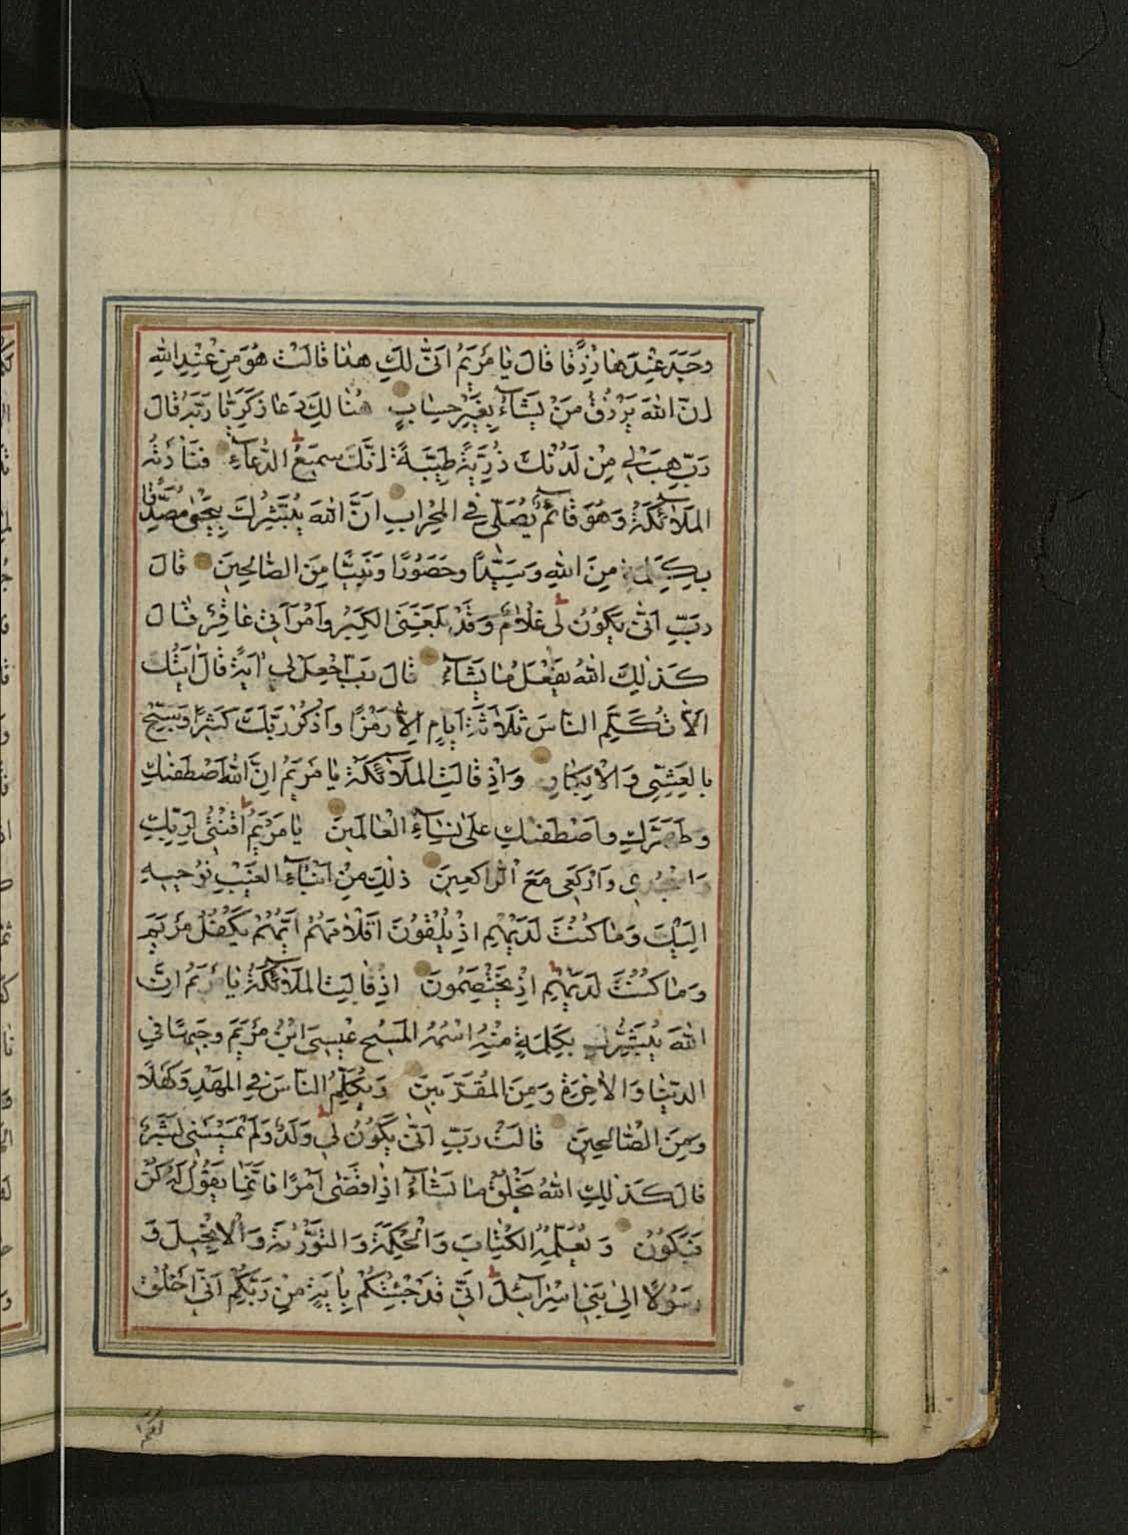 وَجَدَ عِنْدَهَا رِزْقًا قَالَ يَا مَرْيَمُ اَنّٰى لَكِ هٰذَا قَالَتْ هُوَ مِنْ عِنْدِ اللّٰهِ
اِنَّ اللّٰهَ يَرْزُقُ مَنْ يَشَآءُ بِغَيْرِ حِسَابٍ هُنَالِكَ دَعَا زَكَرِيَّا رَبَّهُ قَالَ
رَبِّ هَبْ لِي مِنْ لَدُنْكَ ذُرِّيَّةً طَيِّبَةً اِنَّكَ سَمِيعُ الدُّعَآءِ فَنَادَتْهُ
المَلَآئِكَةُ وَهُوَ قَآئِمٌ يُصَلِّي فِي المِحْرَابِ اَنَّ اللّٰهَ يُبَشِّرُكَ بِيَحْيٰى مُصَدِّقًا
بِكَلِمَةٍ مِنَ اللّٰهِ وَسَيِّدًا وَحَصُورًا وَنَبِيًّا مِنَ الصَّالِحِينَ قَالَ
رَبِّ اَنّٰى يَكُونُ لِي غُلَامٌ وَقَدْ بَلَغَنِيَ الكِبَرُ وَامْرَاَتِي عَاقِرٌ قَالَ
كَذٰلِكَ اللّٰهُ يَفْعَلُ مَا يَشَآءُ قَالَ رَبِّ اجْعَلْ لِي اٰيَةً قَالَ اٰيَتُكَ
اَلَّا تُكَلِّمَ النَّاسَ ثَلَاثَةَ اَيَّامٍ اِلَّا رَمْزًا وَاذْكُرْ رَبَّكَ كَثِيرًا وَسَبِّحْ
بِالعَشِيِّ وَالْاِبْكَارِ وَاِذْ قَالَتِ المَلَآئِكَةُ يَا مَرْيَمُ اِنَّ اللّٰهَ اصْطَفٰىكِ
وَطَهَّرَكِ وَاصْطَفٰىكِ عَلٰى نِسَآءِ الْعَالَمِينَ يَا مَرْيَمُ اقْنُتِي لِرَبِّكِ
وَاسْجُدِي وَارْكَعِي مَعَ الرَّاكِعِينَ ذٰلِكَ مِنْ اَنْبَآءِ الغَيْبِ نُوحِيهِ
اِلَيْكَ وَمَا كُنْتَ لَدَيْهِمْ اِذْ يُلْقُونَ اَقْلَامَهُمْ اَيُّهُمْ يَكْفُلُ مَرْيَمَ
وَمَا كُنْتَ لَدَيْهِمْ اِذْ يَخْتَصِمُونَ اِذْ قَالَتِ المَلَآئِكَةُ يَا مَرْيَمُ اِنَّ
اللّٰهَ يُبَشِّرُكِ بِكَلِمَةٍ مِنْهُ اسْمُهُ المَسِيحُ عِيسَى ابْنُ مَرْيَمَ وَجِيهًا فِي
الدُّنْيَا وَالْاٰخِرَةِ وَمِنَ المُقَرَّبِينَ وَيُكَلِّمُ النَّاسَ فِي المَهْدِ وَكَهْلًا
وَمِنَ الصَّالِحِينَ قَالَتْ رَبِّ اَنّٰى يَكُونُ لِي وَلَدٌ وَلَمْ يَمْسَسْنِي بَشَرٌ
قَالَ كَذٰلِكِ اللّٰهُ يَخْلُقُ مَا يَشَآءُ اِذَا قَضٰى اَمْرًا فَاِنَّمَا يَقُولُ لَهُ كُنْ
فَيَكُونُ وَيُعَلِّمُهُ الكِتَابَ وَالْحِكْمَةَ وَالتَّوْرٰيةَ وَالْاِنْجِيلَ وَ
رَسُولًا اِلٰى بَنِي اِسْرَآئِلَ اَنِّي قَدْ جِئْتُكُمْ بِاٰيَةٍ مِنْ رَبِّكُمْ اَنِّي اَخْلُقُ
لكم